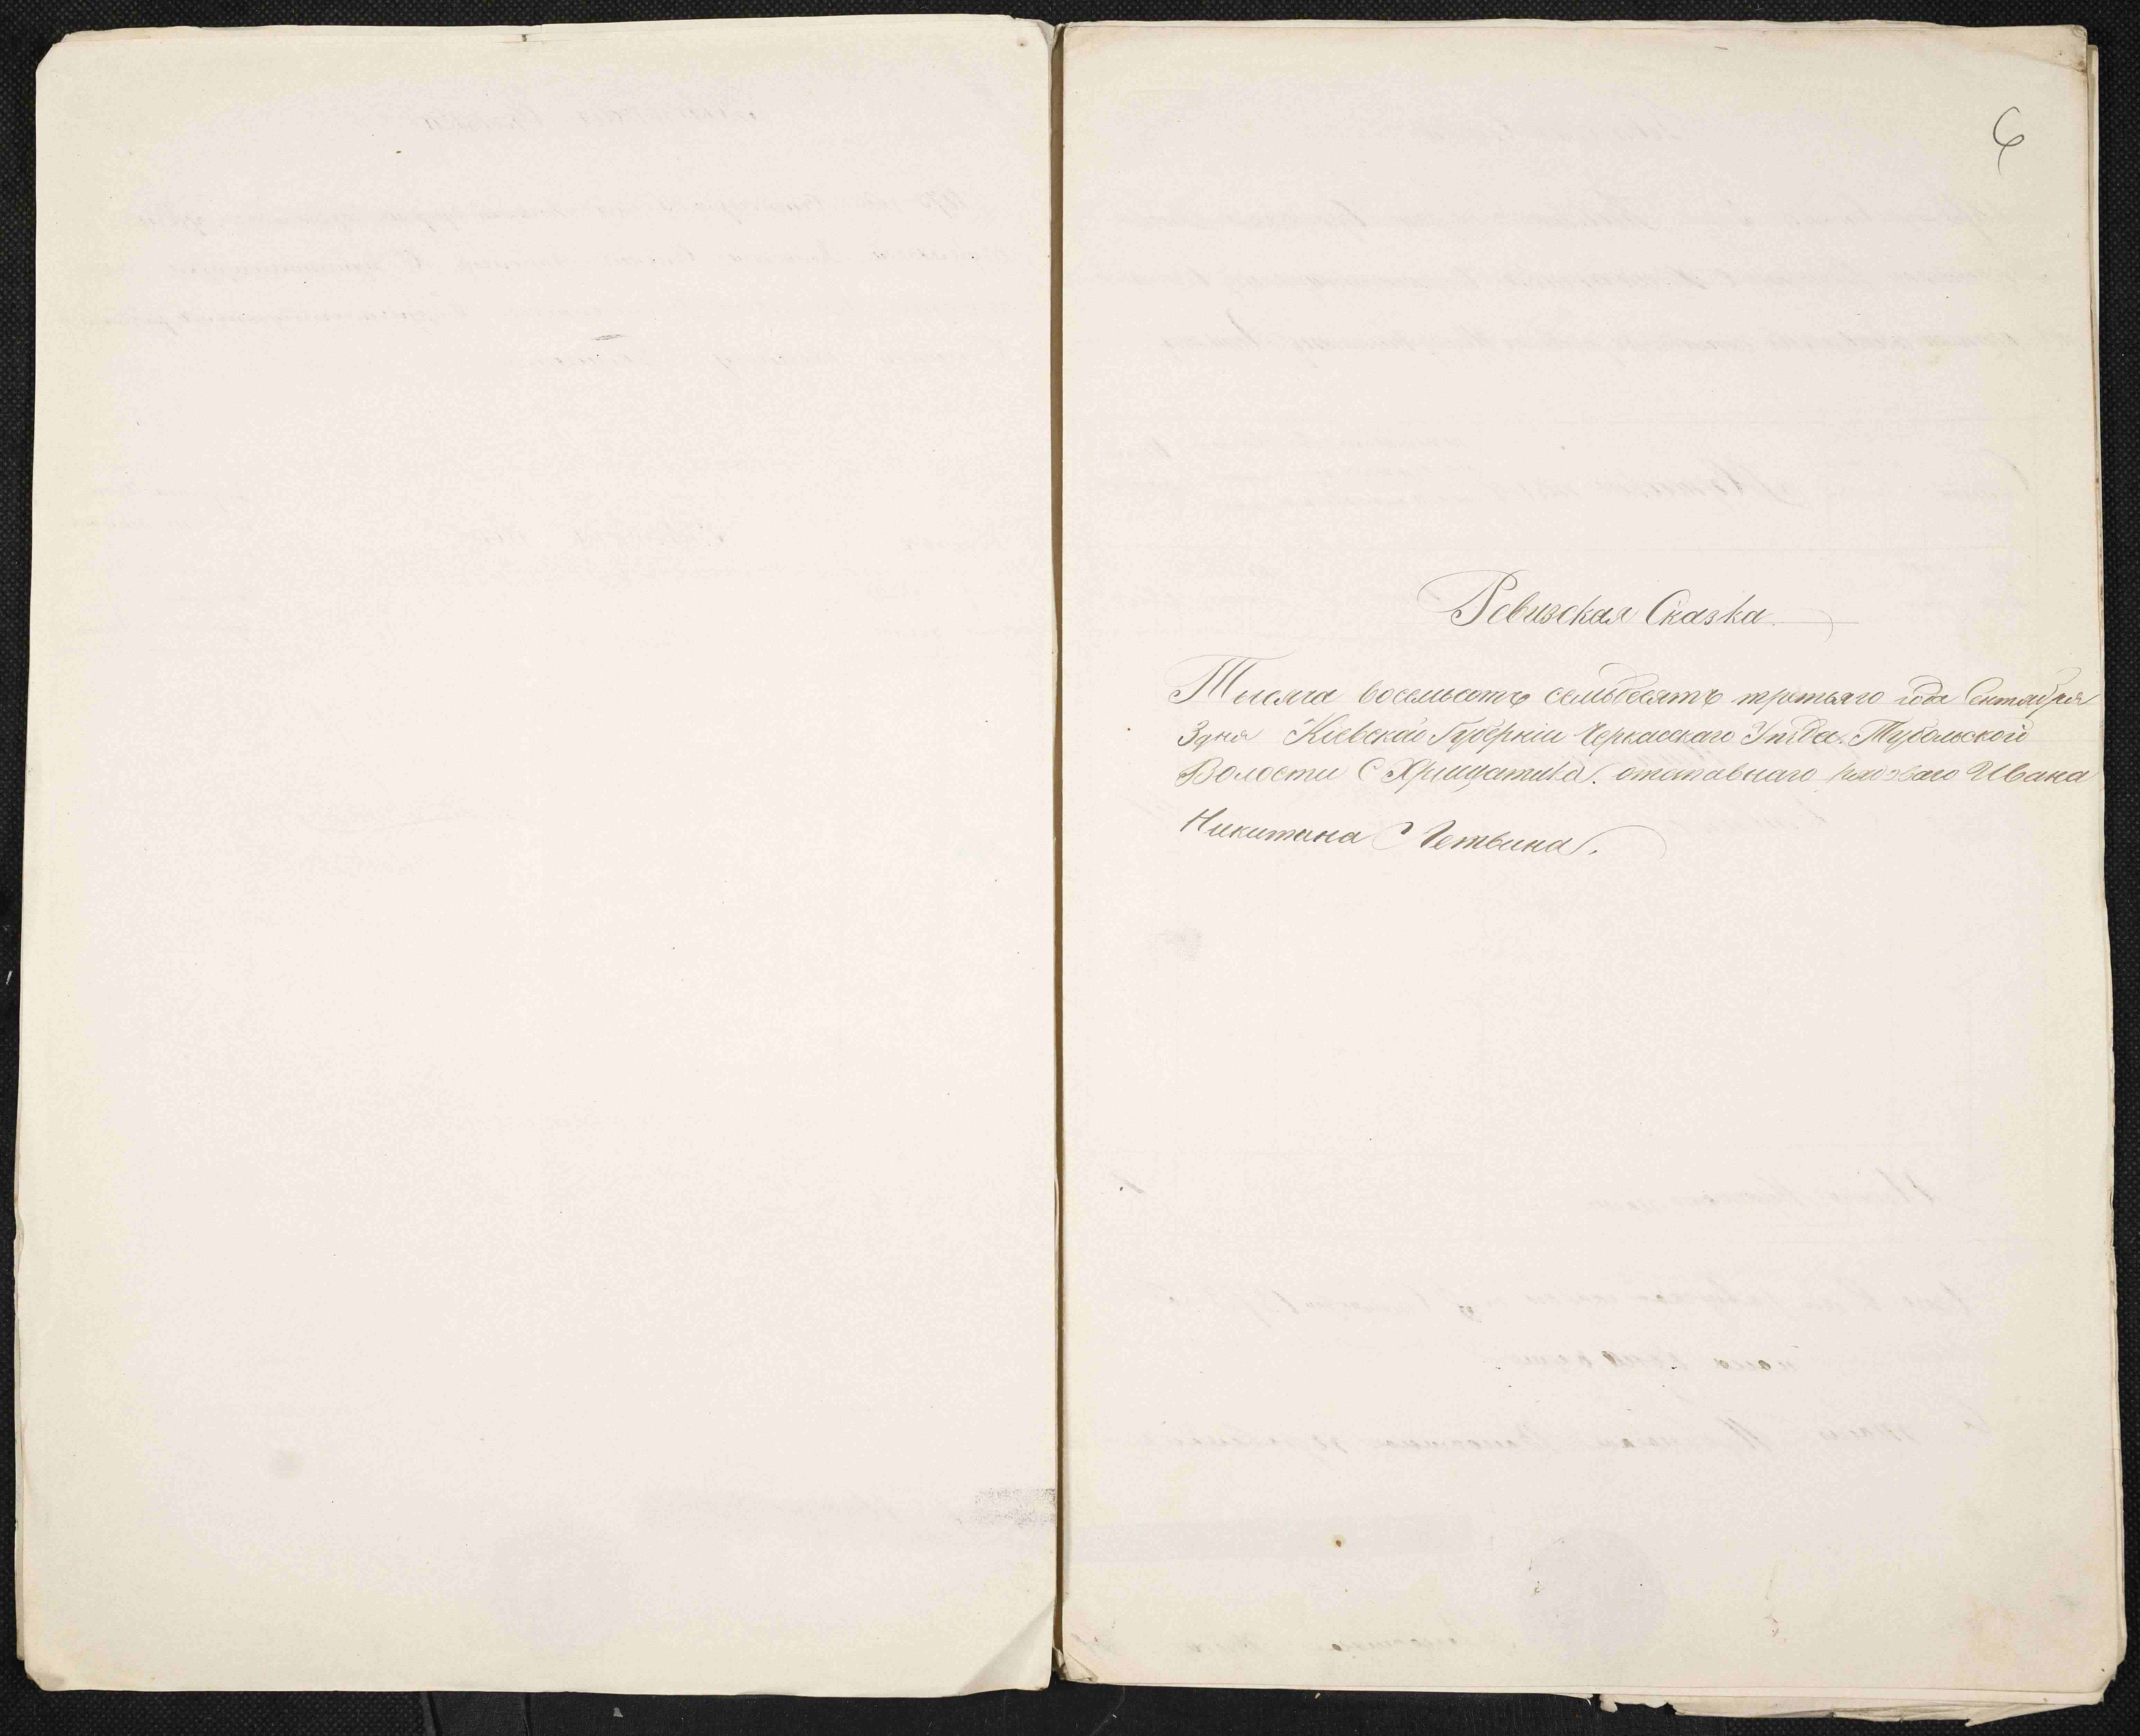 6
Ревизская Сказка.
Тысяча восемьсотъ семьдесятъ третьяго года Сентября
3 дня Кіевской Губерніи Черкасскаго Уѣзда. Тубольской
Волости С Хрищатика. отставнаго рядоваго Ивана
Никитина Четвина.